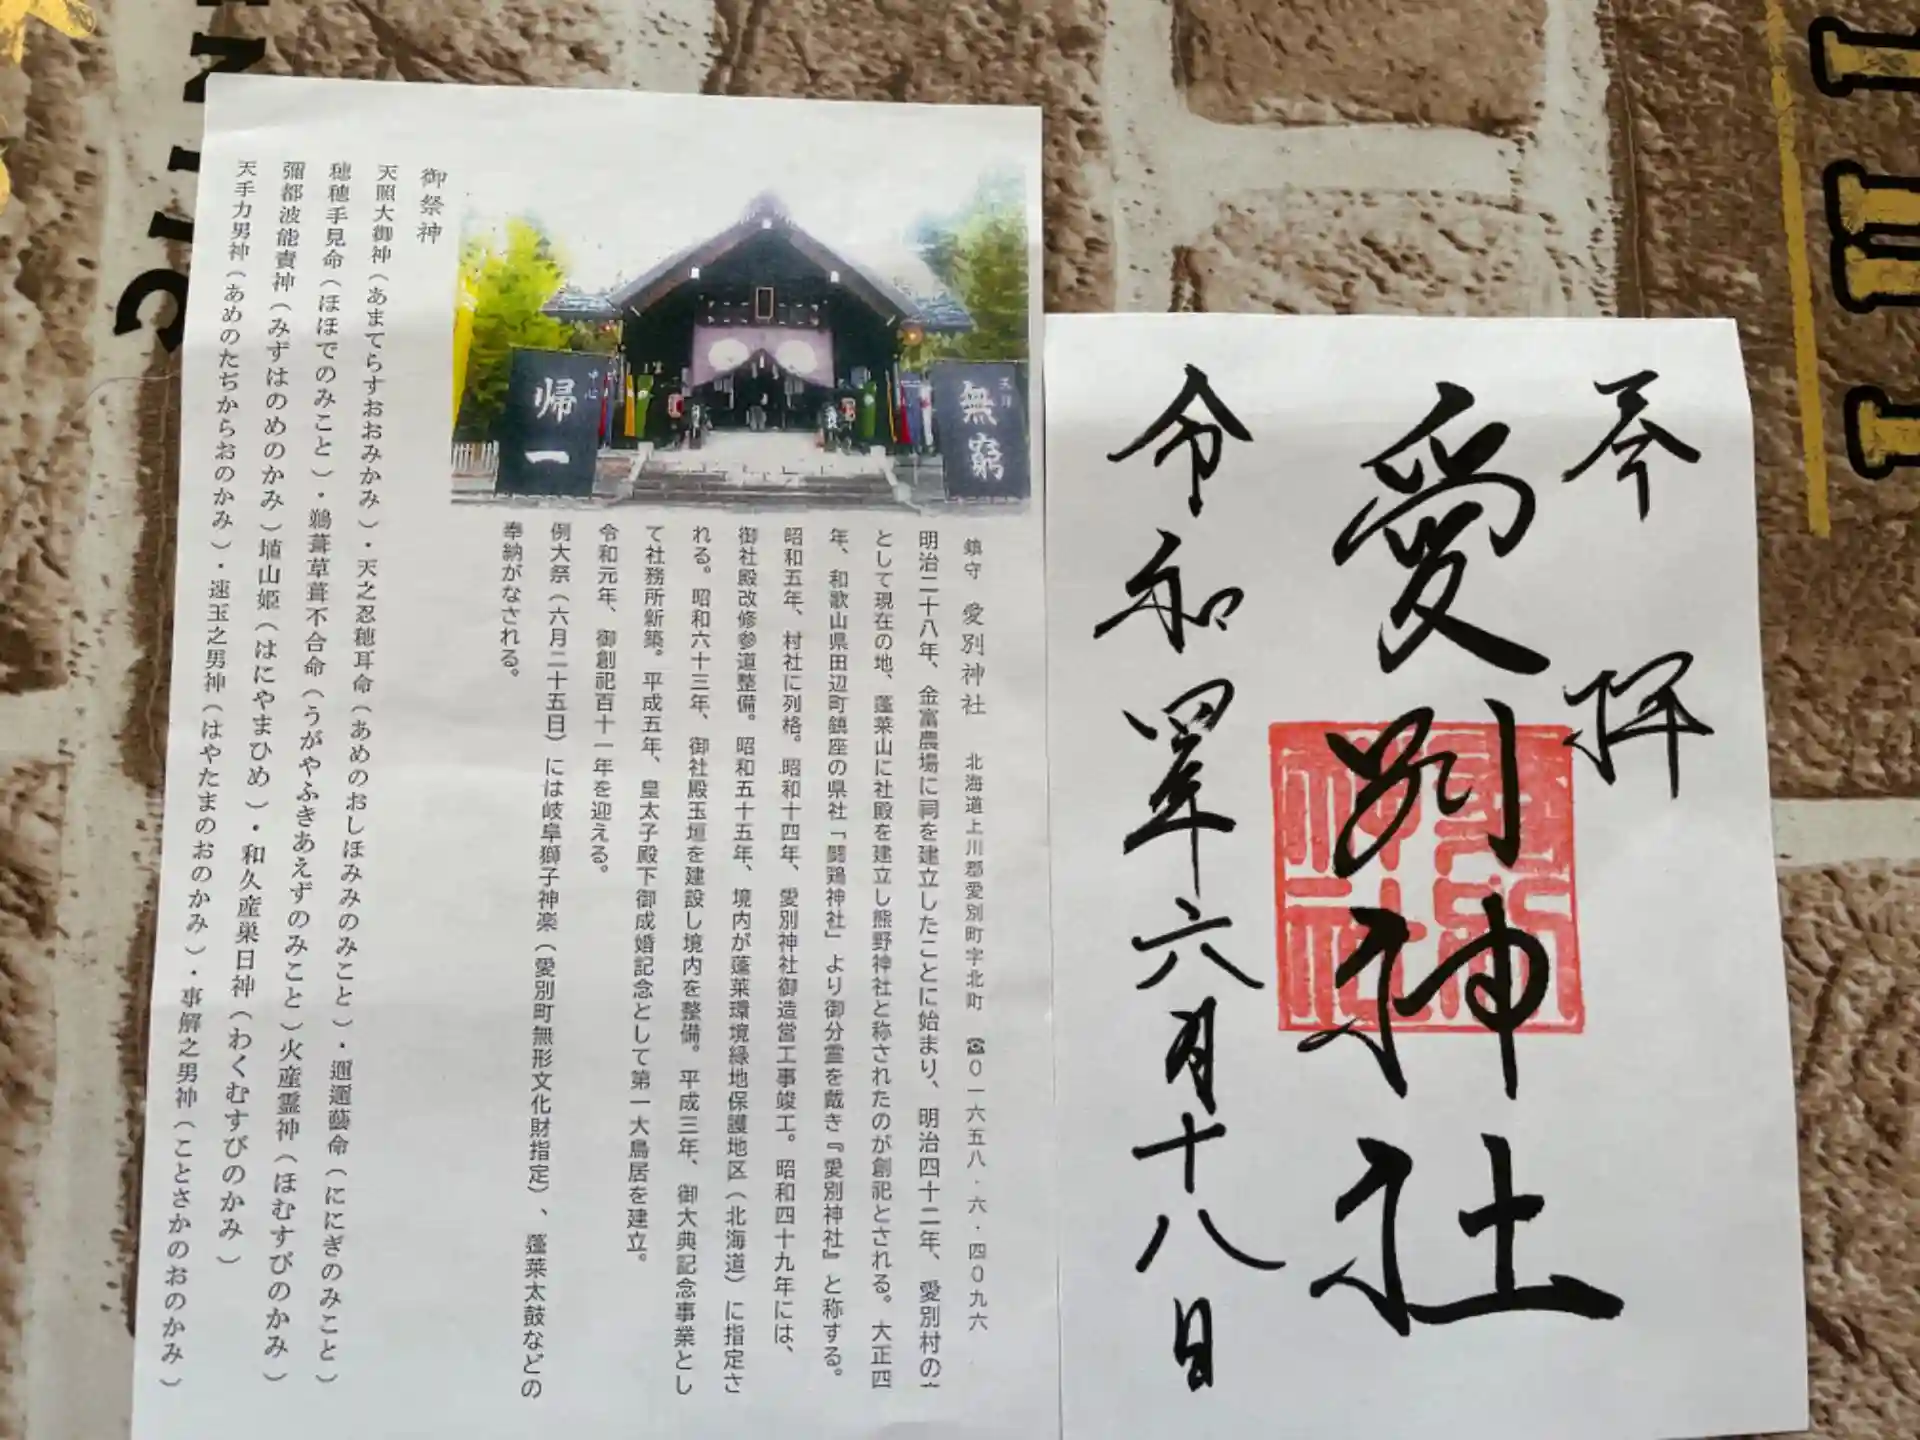 奉拝
愛別神社
令和四年六月十八日
鎮守 愛別神社 北海道上川郡愛別町字北町 ☎0一六五八・六・四0九六
明治二十八年、金富農場に祠を建立したことに始まり、明治四十二年、愛別村の
として現在の地、蓬莱山に社殿を建立し熊野神社と称されたのが創祀とされる。大正四
年、和歌山県田辺町鎮座の県社「闘鶏神社」より御分霊を戴き『愛別神社』と称する。
昭和五年、村社に列格。昭和十四年、愛別神社御造営工事竣工。昭和四十九年には、
御社殿改修参道整備。昭和五十五年、境内が蓬莱環境緑地保護地区（北海道）に指定さ
れる。昭和六十三年、御社殿玉垣を建設し境内を整備。平成三年、御大典記念事業とし
て社務所新築。平成五年、皇太子殿下御成婚記念として第一大鳥居を建立。
令和元年、御創祀百十一年を迎える。
例大祭（六月二十五日）には岐阜獅子神楽（愛別町無形文化財指定）、蓬莱太鼓などの
奉納がなされる。
無窮
帰一
御祭神
天照大御神（あまてらすおおみかみ）・天之忍穂耳命（あめのおしほみみのみこと）・邇邇藝命（ににぎのみこと）
穂穂手見命（ほほでのみこと）・鵜葺草葺不合命（うがやふきあえずのみこと）火産霊神（ほむすびのかみ）
彌都波能賣神（みずはのめのかみ）埴山姫（はにやまひめ）・和久産巣日神（わくむすびのかみ）
天手力男神（あめのたちからおのかみ）・速玉之男神（はやたまのおのかみ）・事解之男神（ことさかのおのかみ）